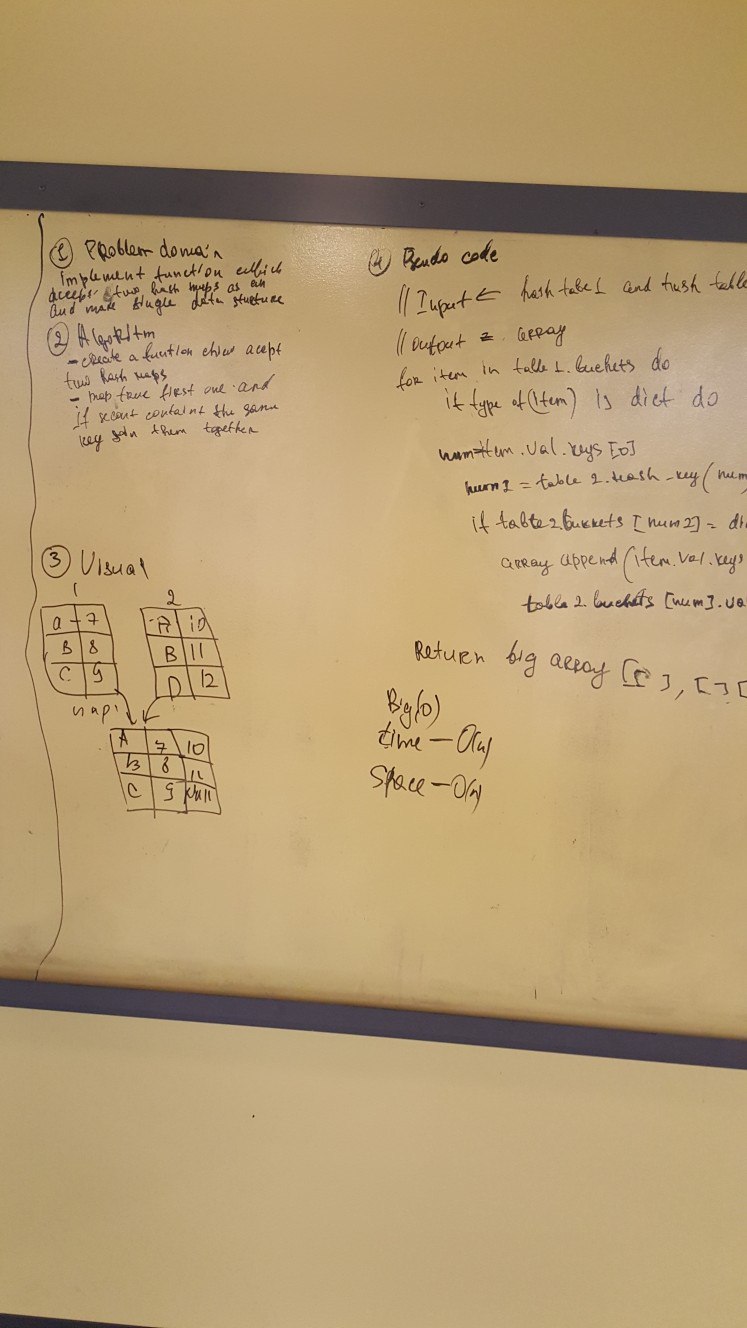 ① Problem domain
Implement function which
accepts two hash maps as an
and make single data structure
② Algoritm
- create a function acept
two hash maps
- map first one and
if containt the same
key join them together
③ Visual
1
a - 7
B 8
C 9
2
A 10
B 11
D 12
map
A 7 10
B 8 11
C 9 Null
④ Pseudo code
// Input ← hash table 1 and hash table
// output = array
for item in table 1.buckets do
if type of (item) is dict do
num=item.val.keys [0]
= table 2.hash-key (num
if table2.buckets [num2] = di
array append (item.val.keys
table2.buckets [num].va
Return big array [[ ], [ ] [
Big(O)
time - O(n)
Space - O(n)